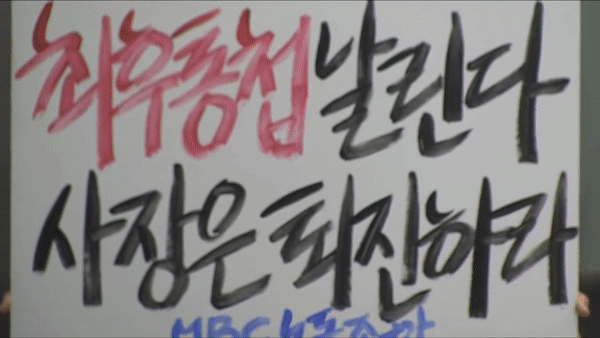 최후통첩 날린다
사장은 퇴진하라
MBC노동조합